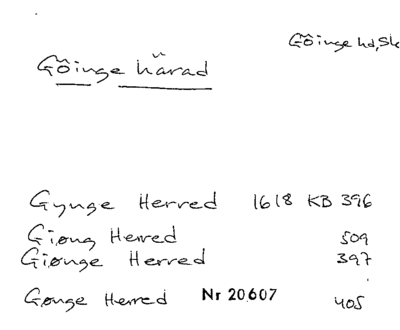 Göinge hd, Sk
Göinge härad
Gynge Herred 1618 KB 396
Giøng Herred 509
Giønge Herred 397
Gønge Herred Nr 20607 405